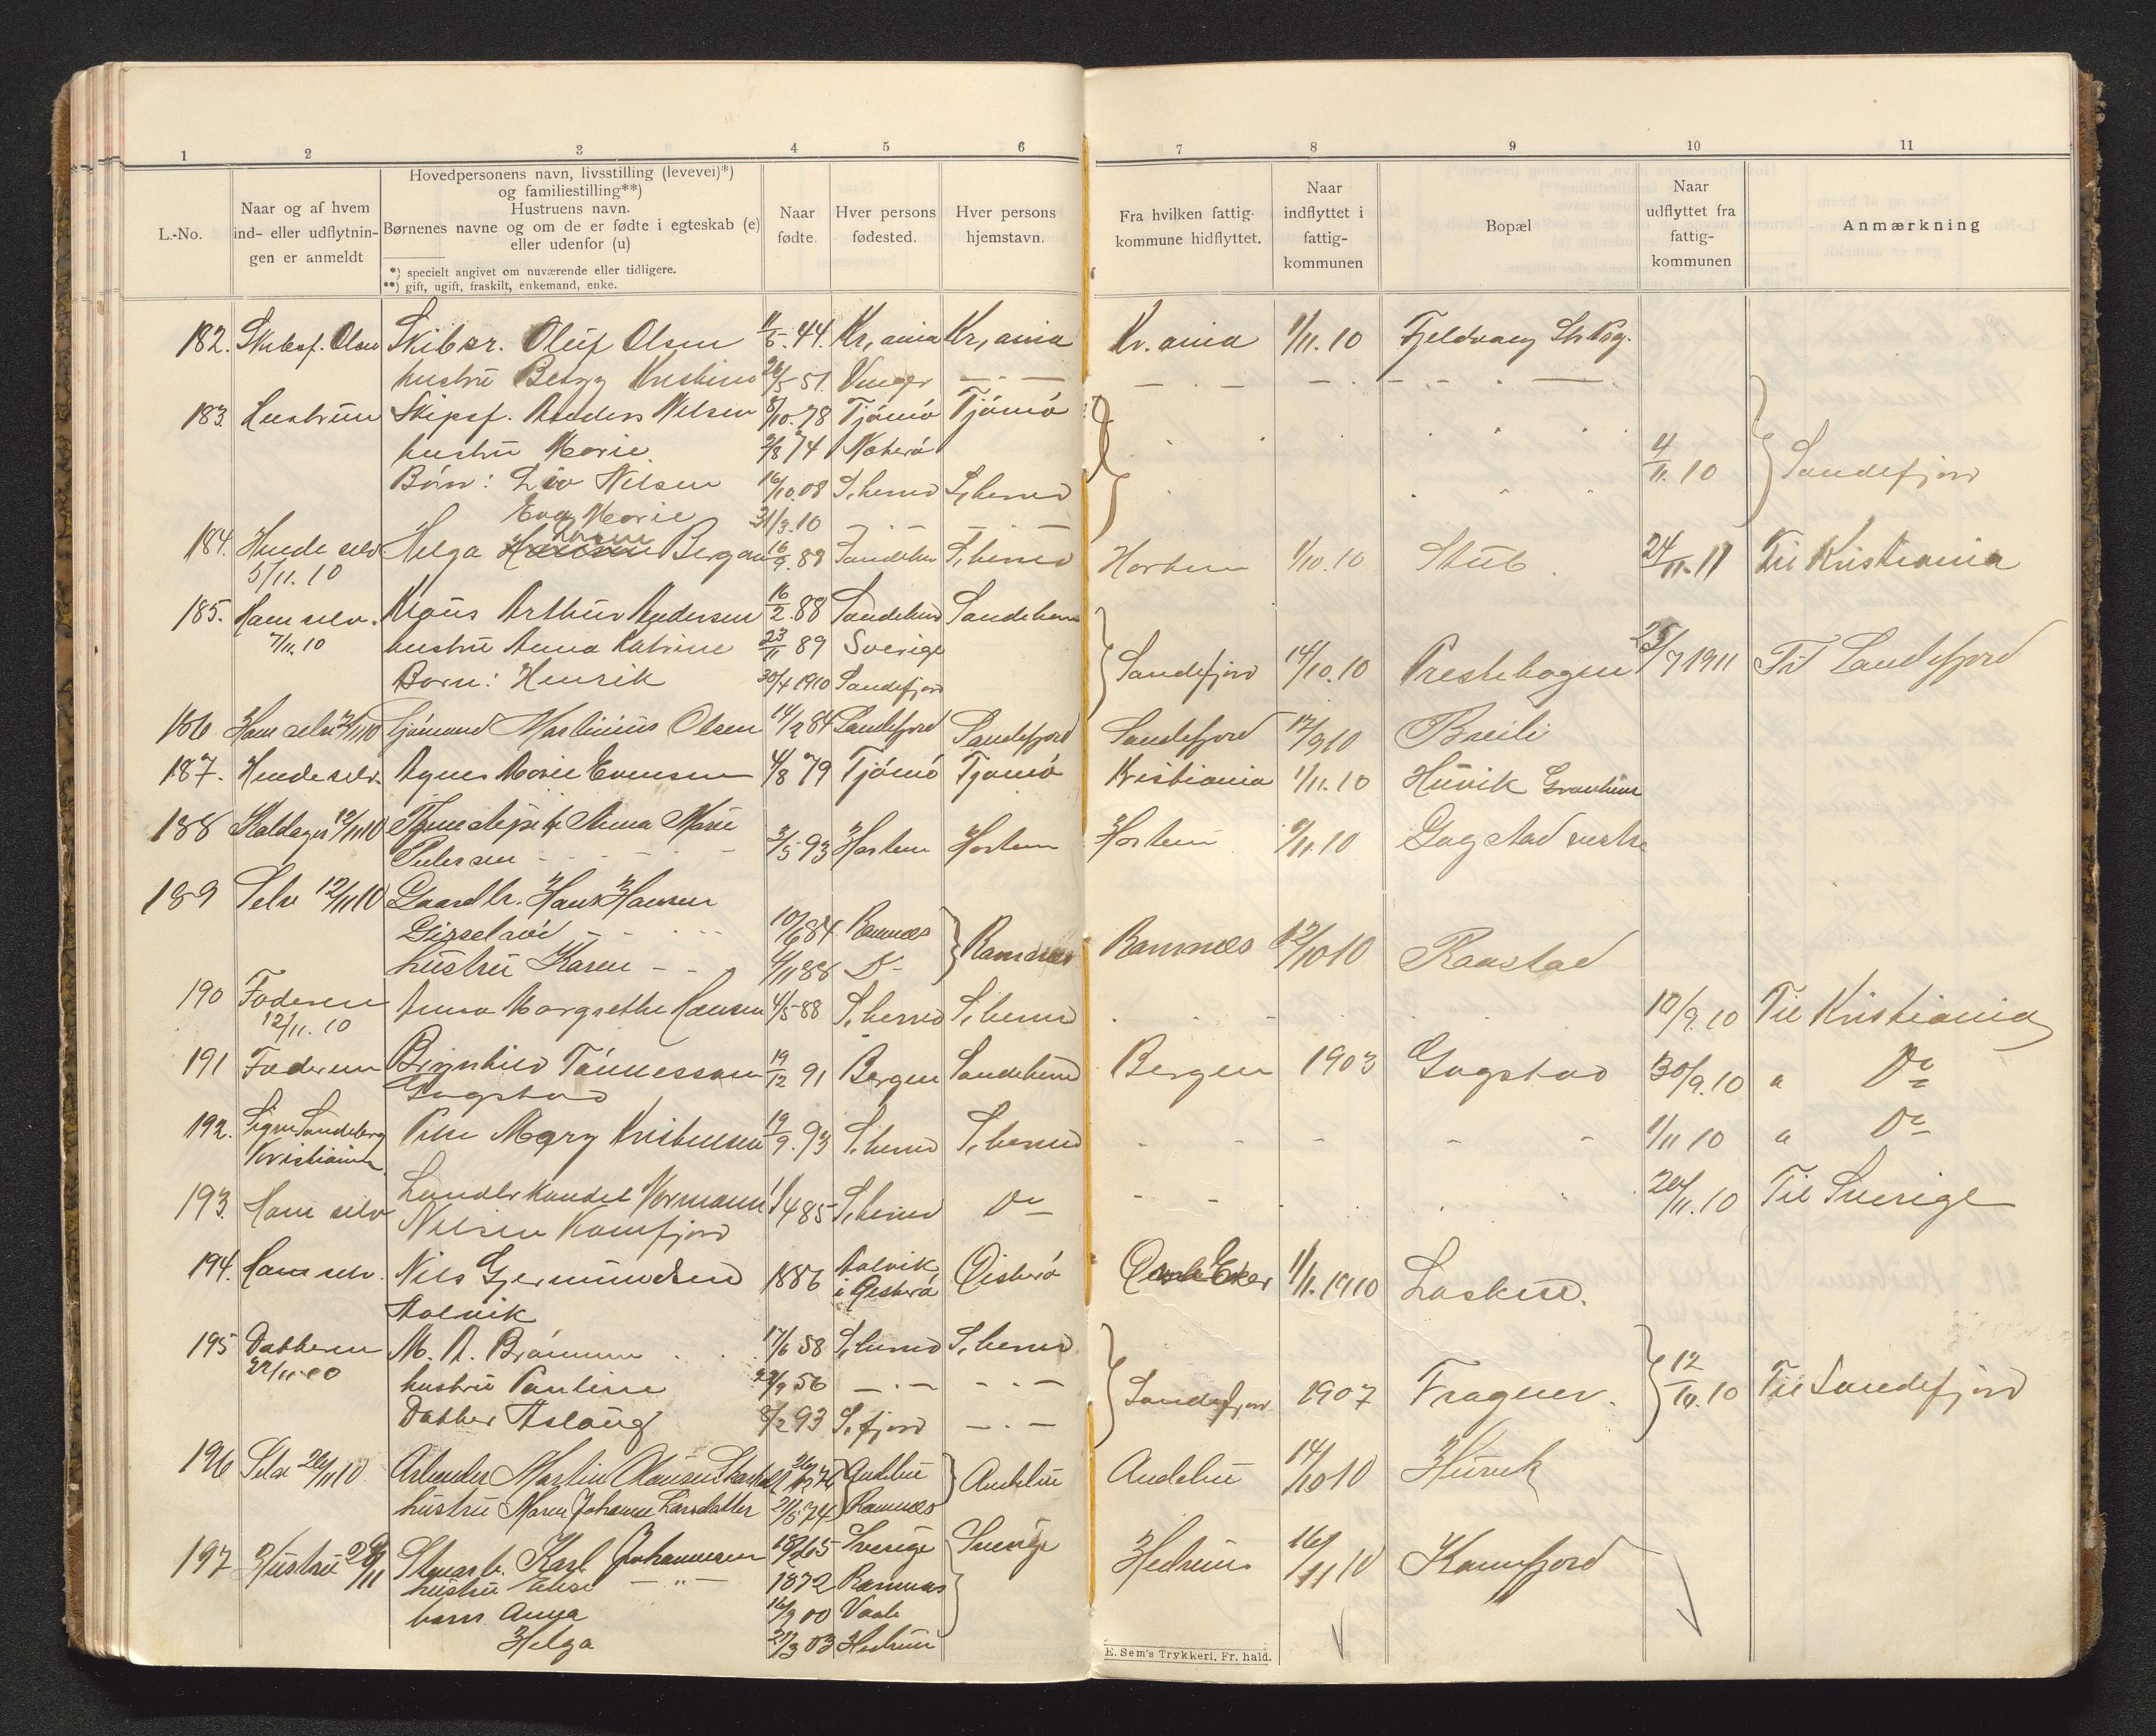 1 2 3 4 5 6 7 8 9 10 11
L.-No.
Naar og af hvem
ind- eller udflytnin-
gen er anmeldt
Hovedpersonens navn, livsstilling (levevei)*)
og familiestilling**)
Hustruens navn.
Børnenes navne og om de er fødte i egteskab (e)
eller udenfor (u)
*) specielt angivet om nuværende eller tidligere.
**) gift, ugift, fraskilt, enkemand, enke.
Naar
fødte.
Hver persons
fødested.
Hver persons
hjemstavn.
Fra hvilken fattig-
kommune hidflyttet.
Naar
indflyttet i
fattig-
kommunen
Bopæl
Naar
udflyttet fra
fattig-
kommunen
Anmærkning
182. Skibsf. Olsen Skibsr. Oluf Olsen 44. Kr,ania Kr,ania Kr.ania 1/11.10
hustru Betzy Kristine 26/5 51. Vinger — . — — . — — . —
183. Hustruen Skipsf. Anders Nilsen 8/10.78 Tjømø Tjømø
hustru Marie 2/8 74 Nøterø 4/11.10 Sandefjord
Børn: Liv Nilsen 16/10.08 S,herred S,herred
Eva Marie 31/3.10 — . — — . —
184. Hende selv Helga Bergan 16/9.89 Sandeherred S,herred Horten 1/10.10 Stub. 24/11.11 Til Kristiania
5/11.10
185. Ham selv. Klaus Arthur Andersen 16/2.88 Sandeherred Sandeherred
7/11.10 hustru Anna Katrine 23/11 89 Sverige Sandefjord 14/10.10 Prestehagen 25/7 1911 Til Sandefjord
Børn: Henrik 30/4 1910 Sandefjord
186 Ham selv 12/11 10 Sjømand Martinius Olsen 14/2 84 Sandefjord Sandefjord Sandefjord 17/9 10 Breili
187. Hende selv. Agnes Marie Evensen 4/8 79 Tjømø Tjømø Kristiania 1/11.10 Huvik Granheim
188 12/11 10 Tjenestepike Anna Marie
Pedersen 3/5 93 Horten Horten Horten 11.10 Gogstad vestre
189 Selv 12/11 10 Gaardbr. Hans Hansen
10/6 84 Ramnes Ramnes Ramnes 12/10 10 Raastad
hustru Karen - - 4/11 88 D-
190 Faderen Anna Margrethe Hansen 4/5 88 S,herred S,herred 10/9.10 Til Kristiania
12/11.10
191 Faderen Brynhild Tønnessen 19/12 91 Bergen Sandeherred Bergen 1903 Gogstad 30/9.10 " Do
Gogstad
192. Signe Sandeberg Mary Kristensen 19/9.93 S,herred S,herred 1/11 10 " Do
Kristiania
193. Ham selv Normann 1/4 85 S,herred Do 20/11.10 Til Sverige
Nilsen Kamfjord
194. Ham selv. Nils Gjermundsen 1886 Aalvik Øistese Eker 1/11.1910
Aalvik
195 Datteren M. A. Brømnum 17/6 58 S,herred S,herred
22/11.00 hustru Pauline 56 — . — — . — Sandefjord 1907 Fragner. 12/10.10 Til Sandefjord
Datter Aslaug 8/2 93 S.fjord — . —
196 Selv 26/11 10 Arbeider Martin Andebu Andebu Andebu 14/10 10 Huvik
hustru Maren Johanne Larsdatter 74 Ramnes
197 Hustru Karl Johannesen 65 Sverige Sverige Hedrum 16/11 10 Kamfjord
hustru Elise — " — 1872 Ramnes
barn Anna 16/9 00 Vaale
Helga 21/3 03 Hedrum
E. Sem's Trykkeri, Fr. hald.